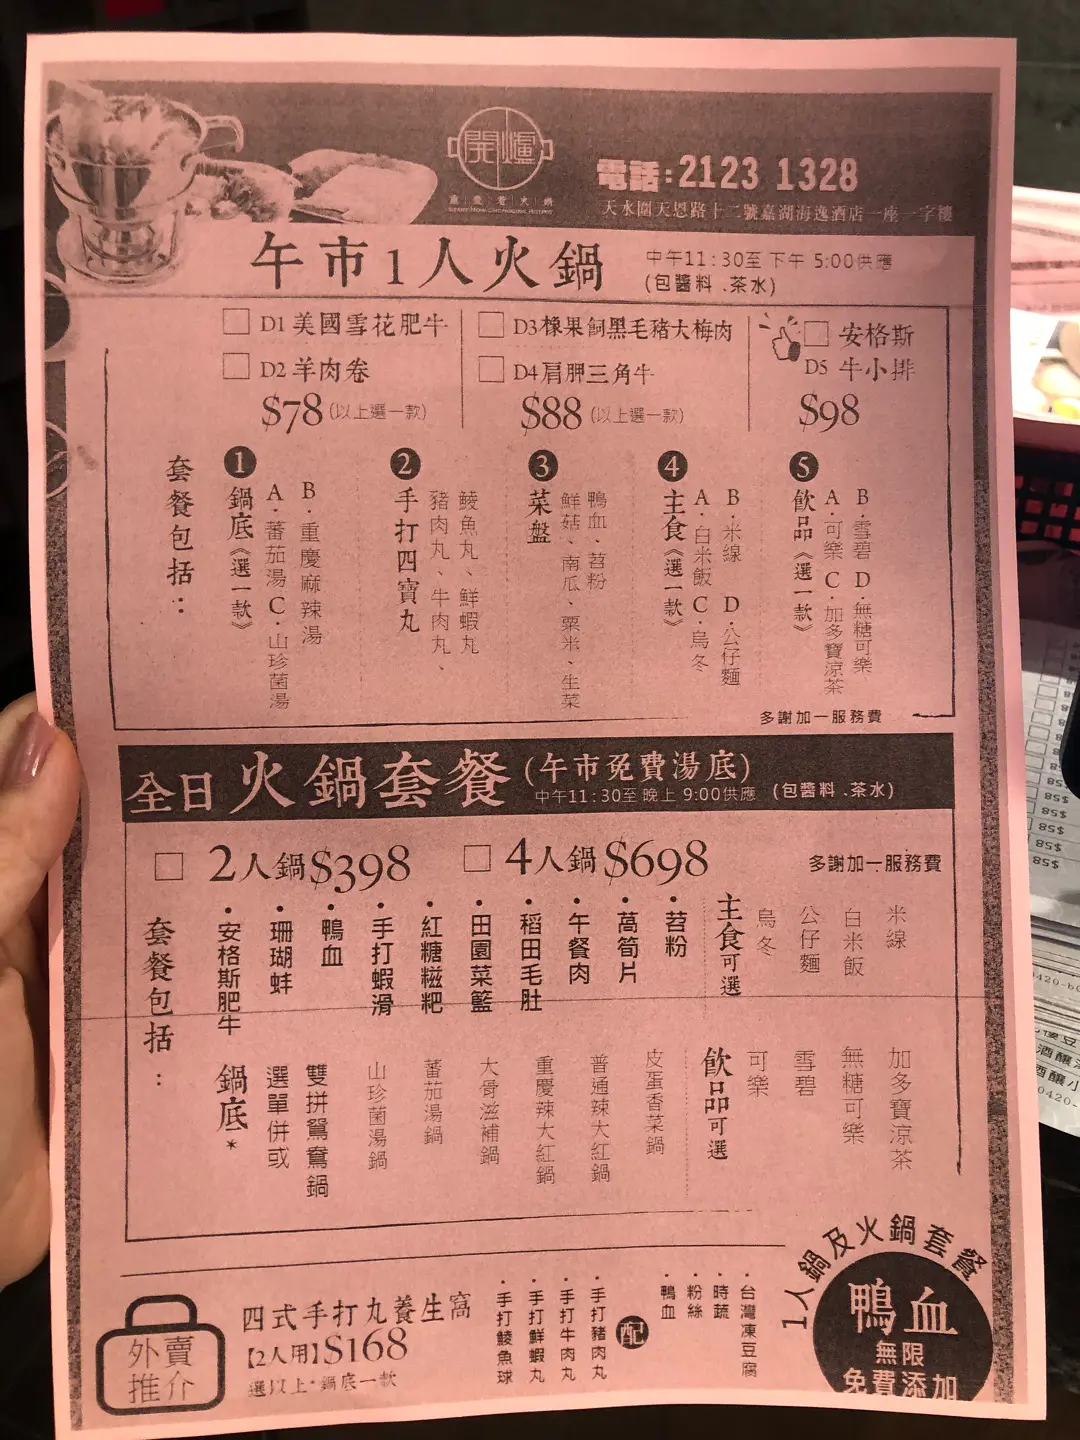 開爐
重慶着火鍋
電話:2123 1328
天水圍天恩路十二號嘉湖海逸酒店一座一字樓
午市1人火鍋
中午11:30至 下午 5:00供應
(包醬料 .茶水)
D1 美國雪花肥牛
D2 羊肉卷
$78 (以上選一款)
D3 橡果飼黑毛豬大梅肉
D4 肩胛三角牛
$88 (以上選一款)
安格斯
D5 牛小排
$98
套餐包括：
1 鍋底《選一款》
A·蕃茄湯 C·山珍菌湯
B·重慶麻辣湯
2 手打四寶丸
豬肉丸、牛肉丸、
鯪魚丸、鮮蝦丸
3 菜盤
鮮菇、南瓜、粟米、生菜
鴨血、苕粉
4 主食《選一款》
A·白米飯 C·烏冬
B·米線 D·公仔麵
5 飲品《選一款》
A·可樂 C·加多寶涼茶
B·雪碧 D·無糖可樂
多謝加一服務費
全日火鍋套餐(午市免費湯底)
中午11:30至 晚上 9:00供應 (包醬料 .茶水)
2人鍋$398
4人鍋$698
多謝加一服務費
套餐包括：
·安格斯肥牛
·珊瑚蚌
·鴨血
·手打蝦滑
·紅糖糍粑
·田園菜籃
·稻田毛肚
·午餐肉
·萵筍片
·苕粉
主食可選
烏冬
公仔麵
白米飯
米線
鍋底*
選單併或
雙拼鴛鴦鍋
山珍菌湯鍋
蕃茄湯鍋
大骨滋補鍋
重慶辣大紅鍋
普通辣大紅鍋
皮蛋香菜鍋
飲品可選
可樂
雪碧
無糖可樂
加多寶涼茶
外賣
推介
四式手打丸養生窩
【2人用】$168
選以上*鍋底一款
·手打鯪魚球
·手打鮮蝦丸
·手打牛肉丸
·手打豬肉丸
配
·鴨血
·粉絲
·時蔬
·台灣凍豆腐
1人鍋及火鍋套餐
鴨血
無限
免費添加